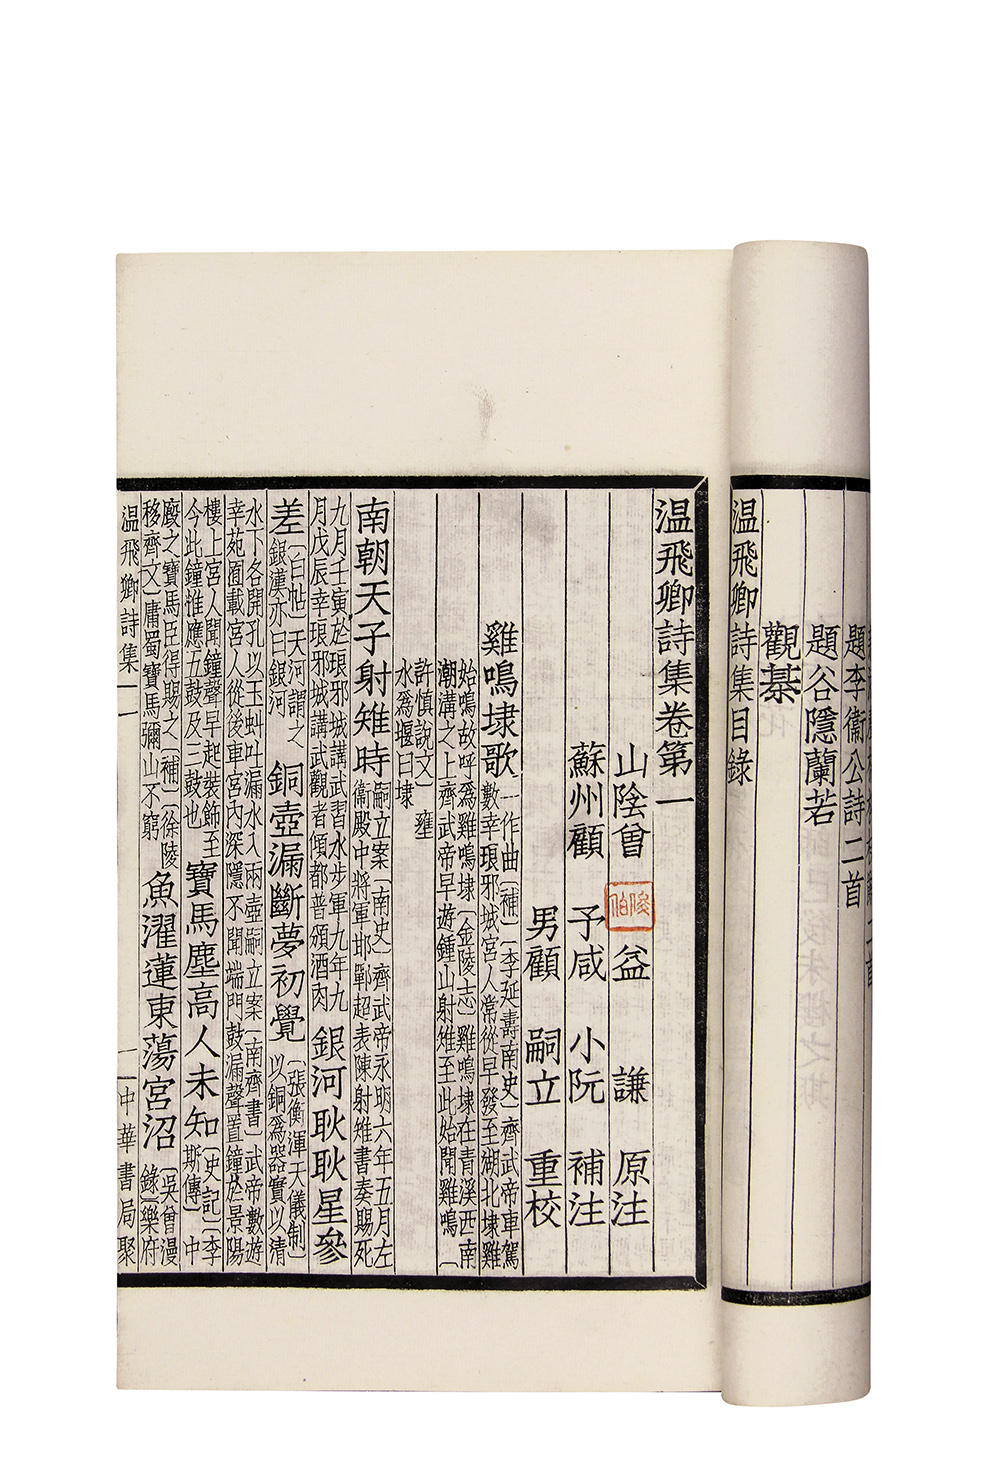 題李衞公詩二首
題谷隱蘭若
觀棊
温飛卿詩集目錄
温飛卿詩集卷第一
山陰曾 益 謙 原注
蘇州顧 予咸 小阮 補注
男顧 嗣立 重校
雞鳴埭歌一作曲〔補〕〔李延壽南史〕齊武帝車駕
數幸琅邪城宮人常從早發至湖北埭雞
始鳴故呼爲雞鳴埭〔金陵志〕雞鳴埭在青溪西南
潮溝之上齊武帝早遊鍾山射雉至此始聞雞鳴〔
許慎說文〕壅
水爲堰曰埭
南朝天子射雉時嗣立案〔南史〕齊武帝永明六年五月左
衞殿中將軍邯鄲超表陳射雉書奏賜死
九月壬寅於琅邪城講武習水步軍九年九
月戊辰幸琅邪城講武觀者傾都普頒酒肉
銀河耿耿星參
差〔白帖〕天河謂之
銀漢亦曰銀河
銅壺漏斷夢初覺〔張衡渾天儀制〕
以銅爲器實以清
水下各開孔以玉虯吐漏水入兩壺嗣立案〔南齊書〕武帝數遊
幸苑囿載宮人從後車宮內深隱不聞端門鼓漏聲置鐘於景陽
樓上宮人聞鐘聲早起裝飾至
今此鐘惟應五鼓及三鼓也
寶馬塵高人未知〔史記〕〔李
斯傳〕中
廄之寶馬臣得賜之〔補〕〔徐陵
移齊文〕庸蜀寶馬彌山不窮
魚濯蓮東蕩宮沼〔吳曾漫
錄〕樂府
温飛卿詩集 一
一 中華書局聚